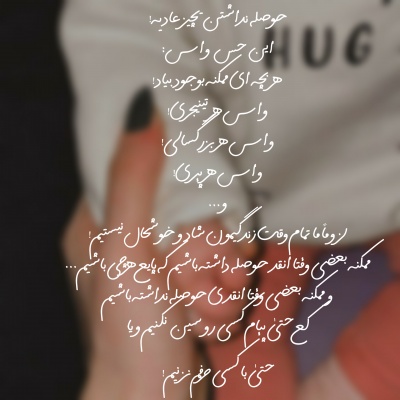 حوصله نداشتن یچیز عادیه!
این حس واسه:
هر بچه ای ممکنه بوجود بیاد!
واسه هر تینیجری!
واسه هر بزرگسالی!
واسه هر پیری!
و...
لزوما ما تمام وقت زندگیمون شاد و خوشحال نیستیم!
ممکنه بعضی وقتا انقد حوصله داشته باشیم که پایه هرچی باشیم...
و ممکنه بعضی وقتا انقدری حوصله نداشته باشیم
که حتی پیام کسی رو سین نکنیم و یا
حتی با کسی حرفم نزنیم!
HUG